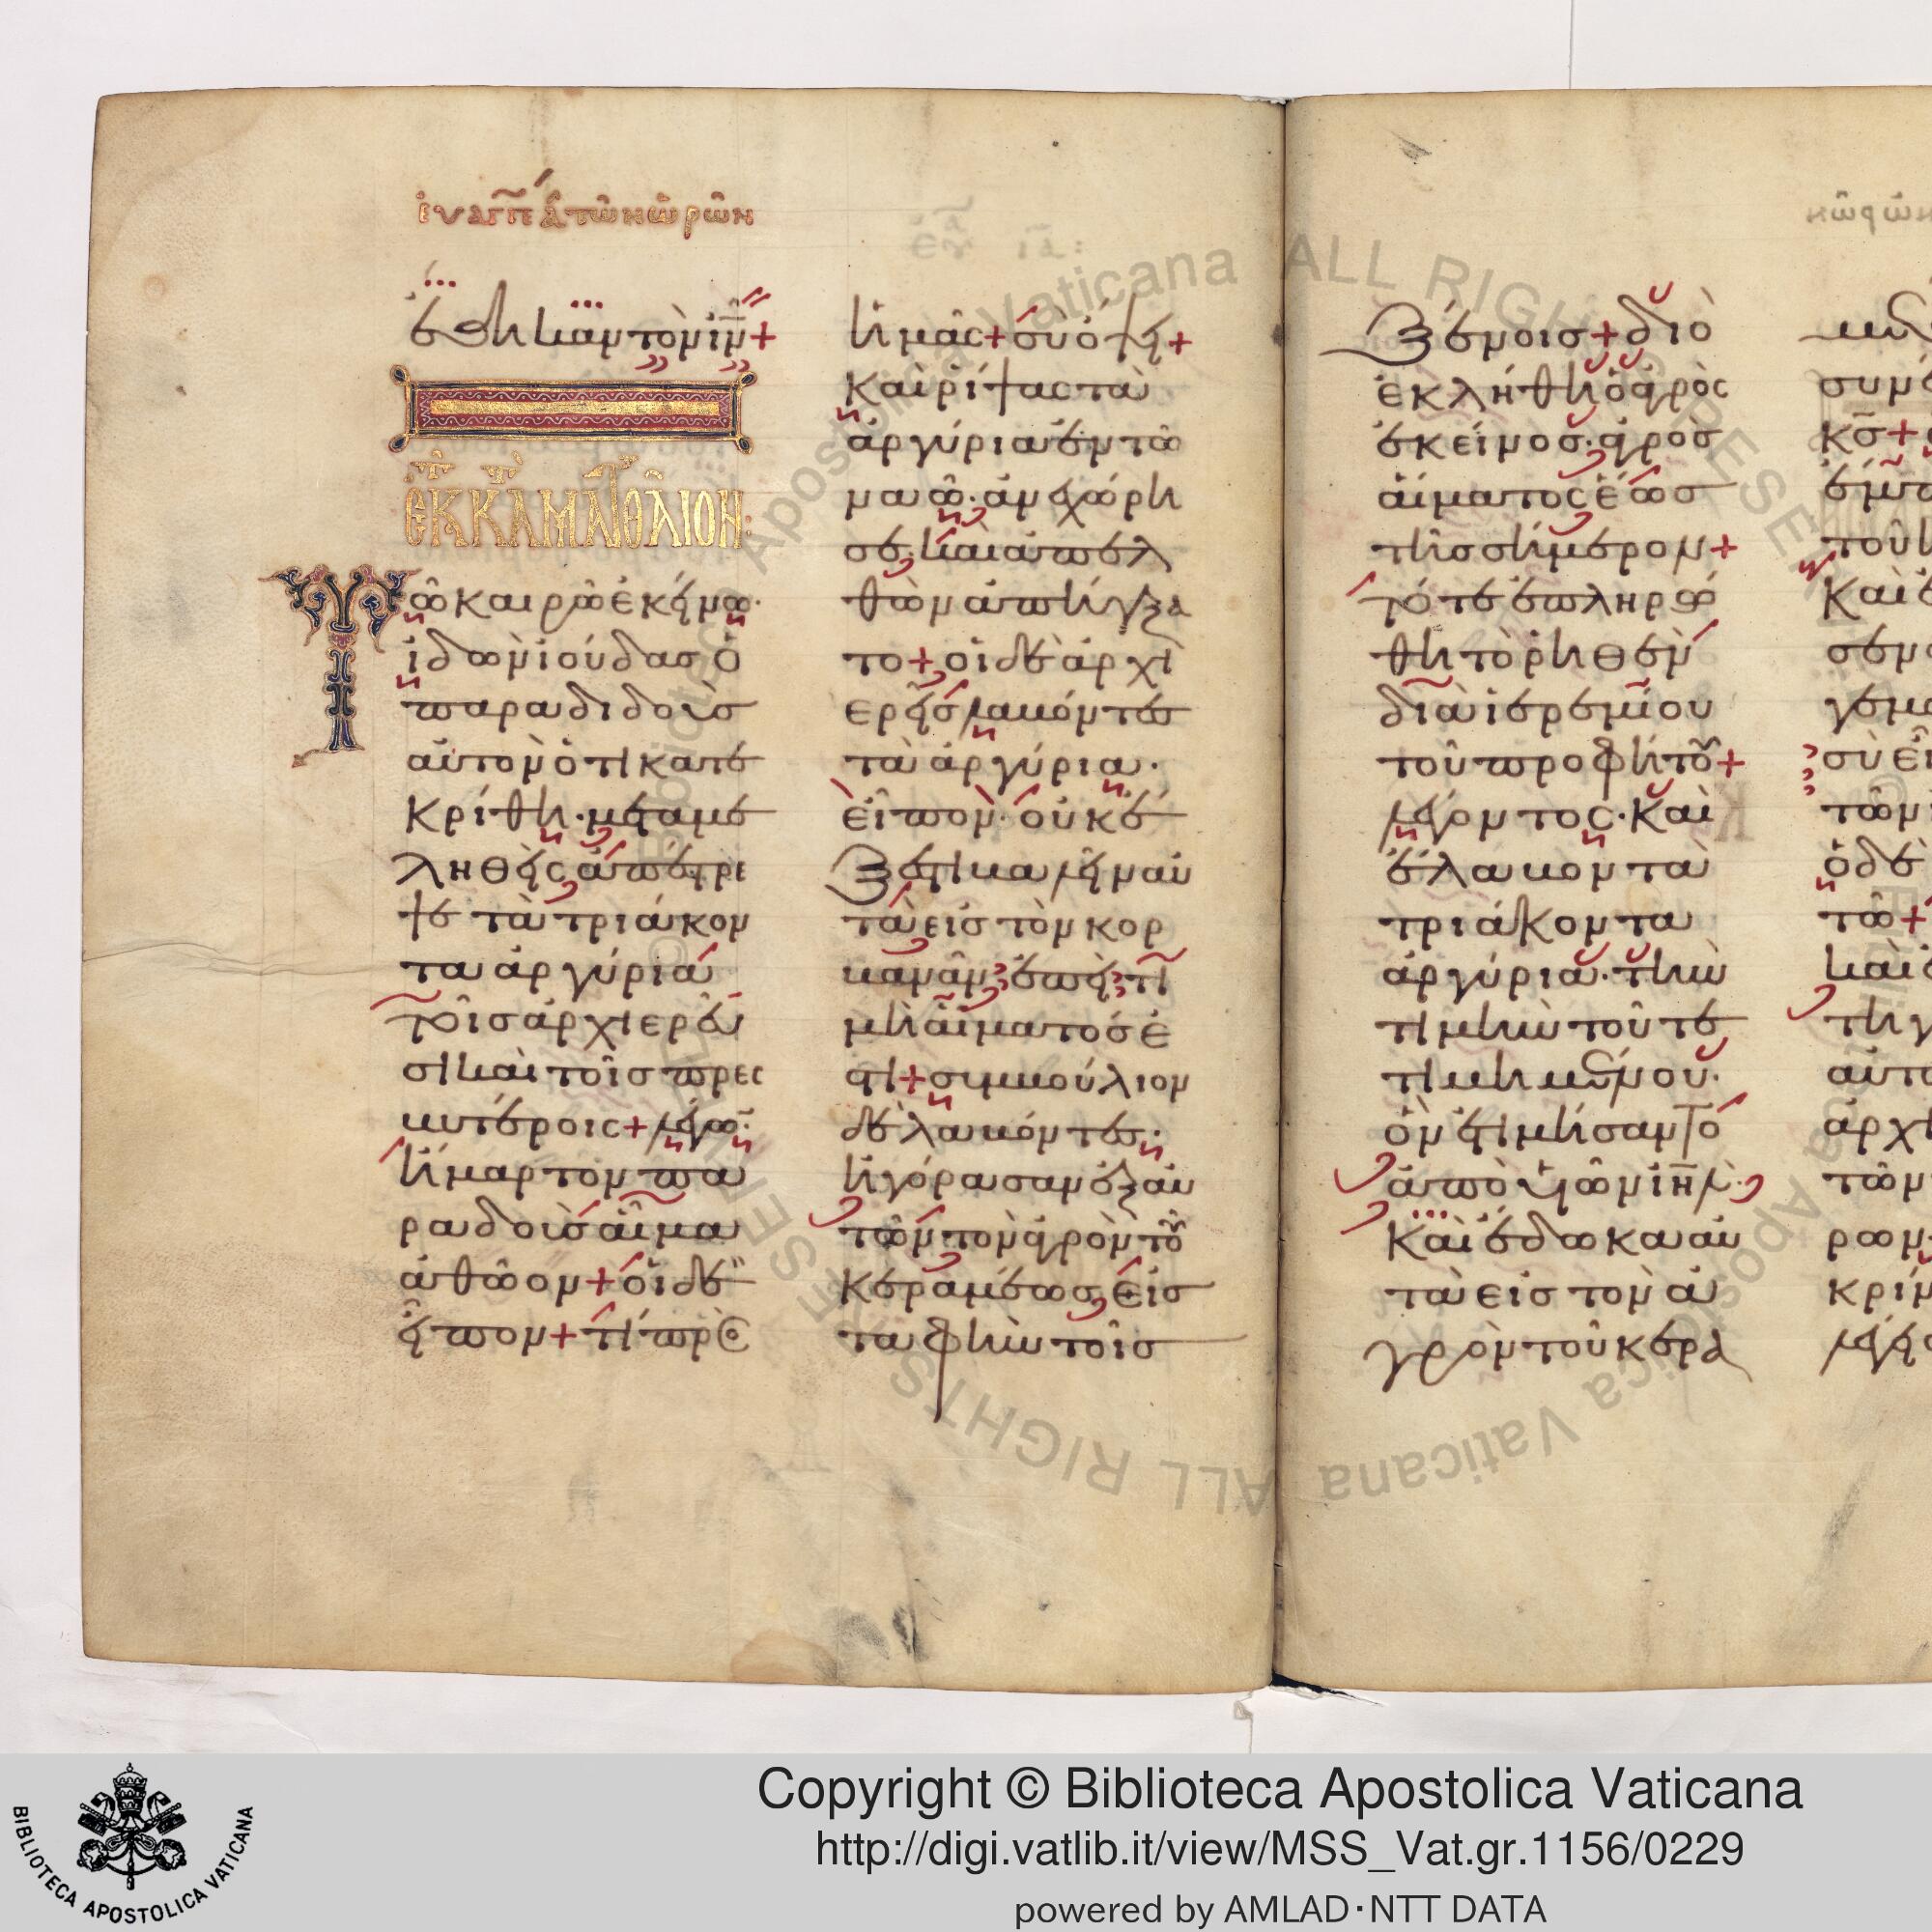 ἐυαγγ ά τῶν ὡρῶν
ἐθηκαν τὸν ιν +
ἐκ κ τ ματθαιον
Τῶ καιρῶ ἐκείνω·
ἰδὼν ἰούδας ὁ
παραδιδοὺσ
αὐτὸν ὅτι κατε
κρίθη· μεταμε
ληθεὶς ἀπέστρε
ψε τὰ τριάκον
τα ἀργύρια
τοῖσ ἀρχιερεῦ
σι καὶ τοῖσ πρεσ
βυτέροις + λέγω·
ἥμαρτον πα
ραδοὺσ αἷμα
ἀθῶον + οἱ δὲ
εἶπον + τί πρὸσ
ἡμᾶς + σὺ ὄψει +
καὶ ῥίψας τὰ
ἀργύρια ἐν τῶ
ναῶ· ἀνεχώρη
σε· καὶ ἀπελ
θὼν ἀπήγξα
το + οἱ δὲ ἀρχι
ερεῖσ λαβόντες
τὰ ἀργύρια·
εἶπον· οὐκ ἔ
ξεστι βαλεῖν αὐ
τὰ εἰσ τὸν κορ
βανᾶν· ἐπεὶ τι
μὴ αἵματόσ ἐ
στι + συμβούλιον
δὲ λαβόντεσ·
ἠγόρασαν ἐξ αὐ
τῶν τὸν ἀγρὸν τοῦ
κεραμέωσ εἰσ
ταφὴν τοῖσ
ξένοισ + διὸ
ἐκλήθη ὁ ἀγρὸς
ἐκεῖνοσ· ἀγρὸσ
αἵματοσ ἕωσ
τῆσ σήμερον +
τότε ἐπληρώ
θη τὸ ῥηθὲν
διὰ ἱερεμίου
τοῦ προφήτου +
λέγοντος· Καὶ
ἔλαβον τὰ
τριάκοντα
ἀργύρια· τὴν
τιμὴν τοῦ τε
τιμημένου·
ὃν ἐτιμήσαντο
ἀπὸ υἱῶν ιηλ·
Καὶ ἔδωκαν αὐ
τὰ εἰσ τὸν ἀ
γρὸν τοῦ κερα
κσ +
τοῦ
Καὶ
σὺ εἶ
τῶν
ὁ δὲ
τῶ +
καὶ
τη
αὐτ
ἀρχι
τῶν
ρων
Copyright © Biblioteca Apostolica Vaticana
http://digi.vatlib.it/view/MSS_Vat.gr.1156/0229
powered by AMLAD·NTT DATA
BIBLIOTECA APOSTOLICA VATICANA